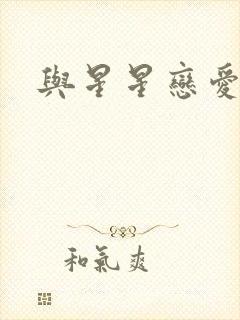 與星星戀愛
和氣爽